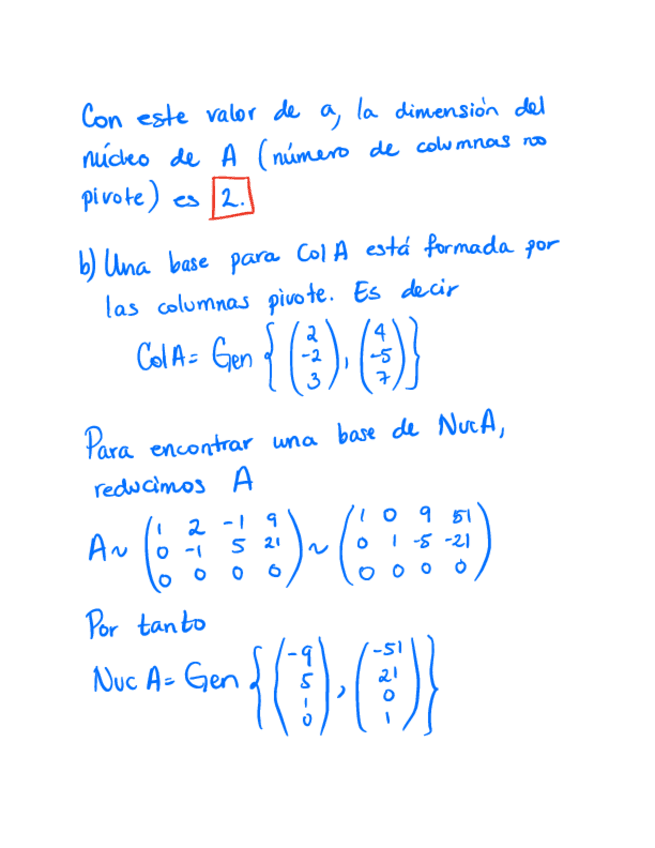 Con este valor de a, la dimensión del
núcleo de A (número de columnas no
pivote) es 2.
b) Una base para Col A está formada por
las columnas pivote. Es decir
Col A = Gen { (2 -2 3), (4 -5 7) }
Para encontrar una base de Nuc A,
reducimos A
A ~ (1 2 -1 9
0 -1 5 21
0 0 0 0) ~ (1 0 9 51
0 1 -5 -21
0 0 0 0)
Por tanto
Nuc A = Gen { (-9 5 1 0), (-51 21 0 1) }